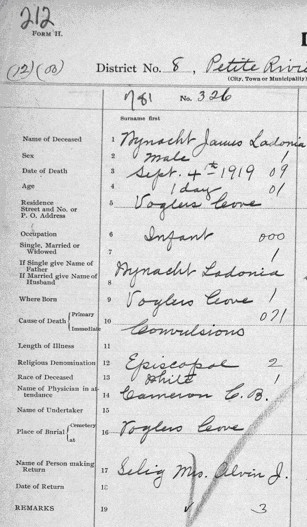 212
FORM II.
(12) (00)
District No. 8, Petite Rivi
(City, Town or Municipality)
No. 326
Surname first
Name of Deceased 1 Wynacht James Ladonia
Sex 2 Male 1
Date of Death 3 Sept. 4th 1919 09
Age 4 1 day 01
Residence
Street and No. or 5 Voglers Cove
P. O. Address
Occupation 6 Infant 000
Single, Married or 7 1
Widowed
If Single give Name of
Father
If Married give Name of 8 Wynacht Ladonia
Husband
Where Born 9 Voglers Cove 1
Cause of Death Primary 10 071
Immediate Convulsions
Length of Illness 11
Religious Denomination 12 Episcopal 2
Race of Deceased 13 White 1
Name of Physician in at- 14 Cameron C. B.
tendance
Name of Undertaker 15
Place of Burial Cemetery 16 Voglers Cove
at
Name of Person making 17 Selig Mrs. Alvin J.
Return
Date of Return 18
REMARKS 19 3